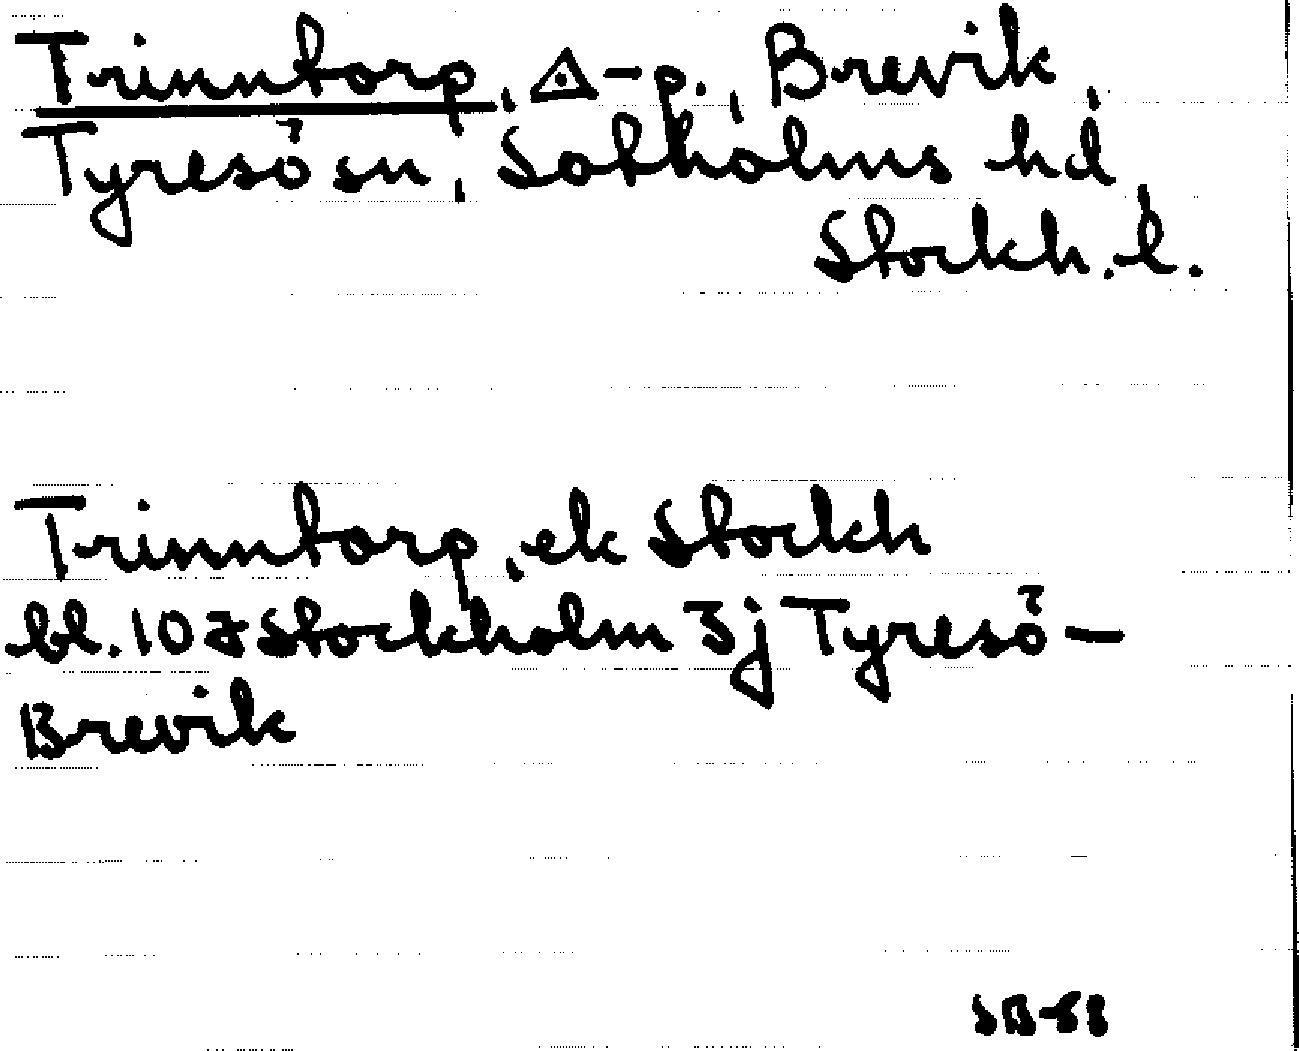 Trinntorp, △-p., Brevik,
Tyresö sn, Sotholms hd,
Stockh. l.
Trinntorp, ek Stockh
bl. 107 Stockholm 3j Tyresö–
Brevik